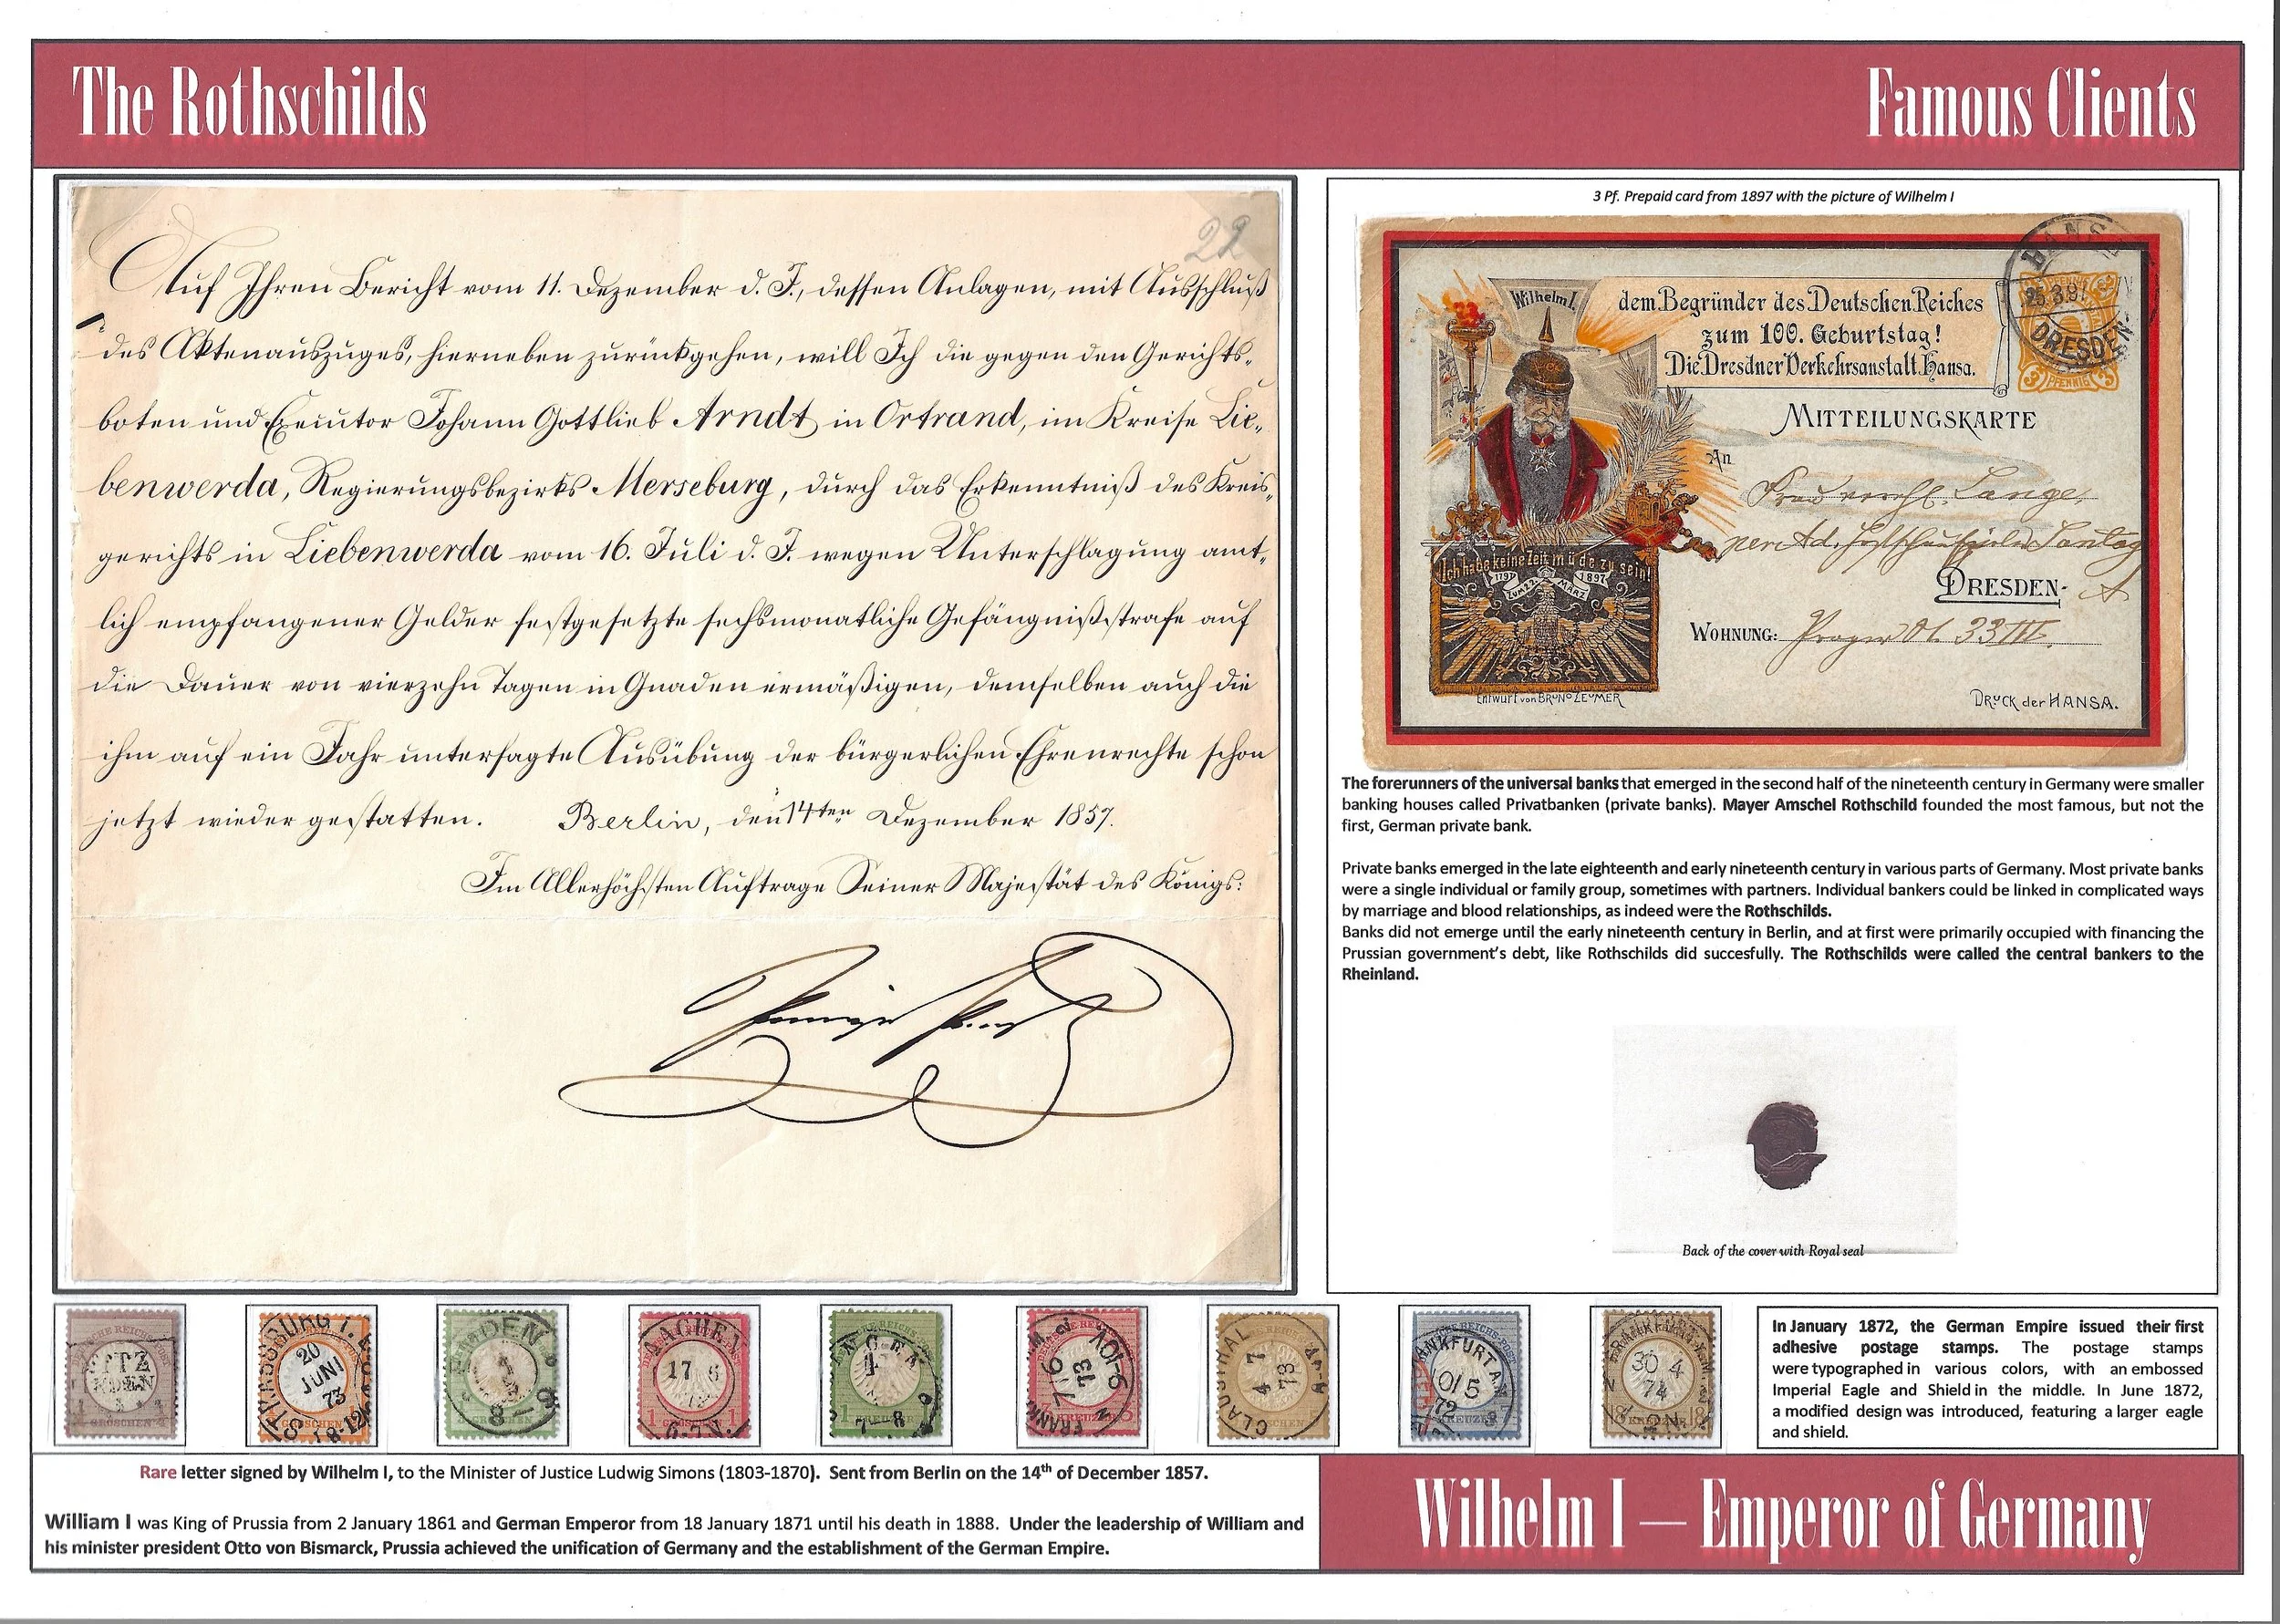 The Rothschilds
Famous Clients
22
Auf Ihren Bericht vom 11. Dezember d. J., dessen Anlagen, mit Ausschluß
des Aktenauszuges, hierneben zurückgehen, will Ich die gegen den Gerichts-
boten und Executor Johann Gottlieb Arndt in Ortrand, im Kreise Lie-
benwerda, Regierungsbezirks Merseburg, durch das Erkenntniß des Kreis-
gerichts in Liebenwerda vom 16. Juli d. J. wegen Unterschlagung amt-
lich empfangener Gelder festgesetzte sechsmonatliche Gefängnißstrafe auf
die Dauer von vierzehn Tagen in Gnaden ermäßigen, demselben auch die
ihm auf ein Jahr untersagte Ausübung der bürgerlichen Ehrenrechte schon
jetzt wieder gestatten. Berlin, den 14ten Dezember 1857.
Im Allerhöchsten Auftrage Seiner Majestät des Königs:
3 Pf. Prepaid card from 1897 with the picture of Wilhelm I
Wilhelm I.
dem Begründer des Deutschen Reiches
zum 100. Geburtstag!
Die Dresdner Verkehrsanstalt Hansa.
HANSA
25.3.97
DRESDEN
3 PFENNIG 3
MITTEILUNGSKARTE
An
Lange,
DRESDEN- A
WOHNUNG: 33 IV.
Ich habe keine Zeit müde zu sein!
1797 1897
ZUM 22. MÄRZ
Entwurf von BRUNO ZEUMER
DRUCK der HANSA.
The forerunners of the universal banks that emerged in the second half of the nineteenth century in Germany were smaller
banking houses called Privatbanken (private banks). Mayer Amschel Rothschild founded the most famous, but not the
first, German private bank.
Private banks emerged in the late eighteenth and early nineteenth century in various parts of Germany. Most private banks
were a single individual or family group, sometimes with partners. Individual bankers could be linked in complicated ways
by marriage and blood relationships, as indeed were the Rothschilds.
Banks did not emerge until the early nineteenth century in Berlin, and at first were primarily occupied with financing the
Prussian government's debt, like Rothschilds did succesfully. The Rothschilds were called the central bankers to the
Rheinland.
Back of the cover with Royal seal
STRASSBURG I. E.
20 JUNI 73
8-12
GROSCHEN
AACHEN
17 6
1 GROSCHEN 1
1 KREUZER
7 6 73
KREUZER
CLAUSTHAL
4 7 73
FRANKFURT A.M.
72
KREUZER
FRANKFURT A.M.
30 4
74
18 KREUZER 18
In January 1872, the German Empire issued their first
adhesive postage stamps. The postage stamps
were typographed in various colors, with an embossed
Imperial Eagle and Shield in the middle. In June 1872,
a modified design was introduced, featuring a larger eagle
and shield.
Rare letter signed by Wilhelm I, to the Minister of Justice Ludwig Simons (1803-1870). Sent from Berlin on the 14th of December 1857.
William I was King of Prussia from 2 January 1861 and German Emperor from 18 January 1871 until his death in 1888. Under the leadership of William and
his minister president Otto von Bismarck, Prussia achieved the unification of Germany and the establishment of the German Empire.
Wilhelm I — Emperor of Germany